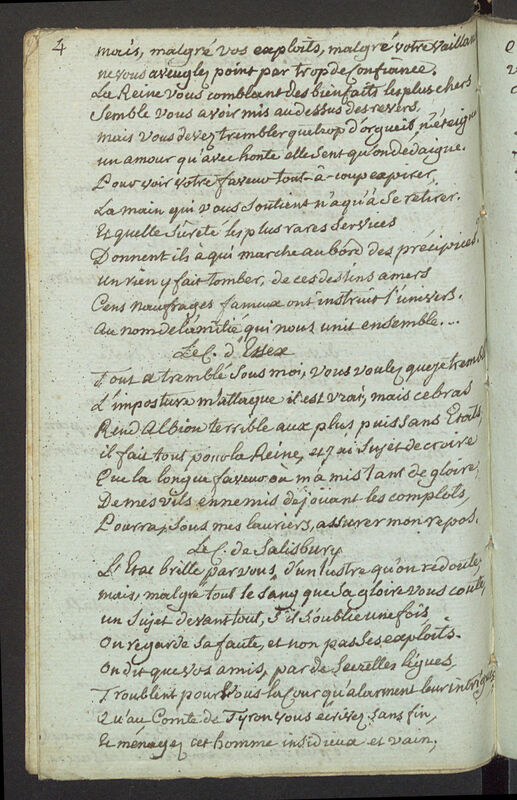 4
mais, malgré vos exploits, malgré votre vaillan
ne vous aveuglez point par trop de Confiance.
La Reine vous comblant des bienfaits les plus chers
Semble vous avoir mis au dessus des revers,
mais vous devez trembler que trop d'orgueil, n'éteign
un amour qu'avec honte elle Sent qu'on dedaigne.
Pour voir votre faveur tout-à-coup expirer,
La main qui vous Soutient n'a qu'à Se retirer.
Et quelle Sureté les plus rares Services
Donnent ils à qui marche au bord des précipices.
un rien y fait tomber, de ces destins amers
Cens naufrages fameux ont instruit l'univers.
Au nom de l'amitié qui nous unit ensemble....
Le C. d'Essex
Tout a tremblé Sous moi, vous voulez que je trembl
L'imposture m'attaque il est vrai, mais ce bras
Rend Albion terrible aux plus puissans Etats,
il fait tout pour la Reine, et j'ai Sujet de croire
Que la longue faveur où m'a mis tant de gloire,
De mes vils ennemis déjouant les complots,
Pourra, Sous mes lauriers, assurer mon repos.
Le C. de Salisbury
L'Etat brille par vous, d'un lustre qu'on redoute,
mais, malgré tout le Sang que Sa gloire vous coute,
un Sujet devant tout, S'il S'oublie une fois
On regarde Sa faute, et non pas Ses exploits.
On dit que vos amis, par de Secrettes ligues,
Troublent pour Vous la Cour qu'alarment leur intrigues
Qu'au Comte de Tyron vous écrivez Sans fin,
Et ménagez cet homme insidieux et vain,